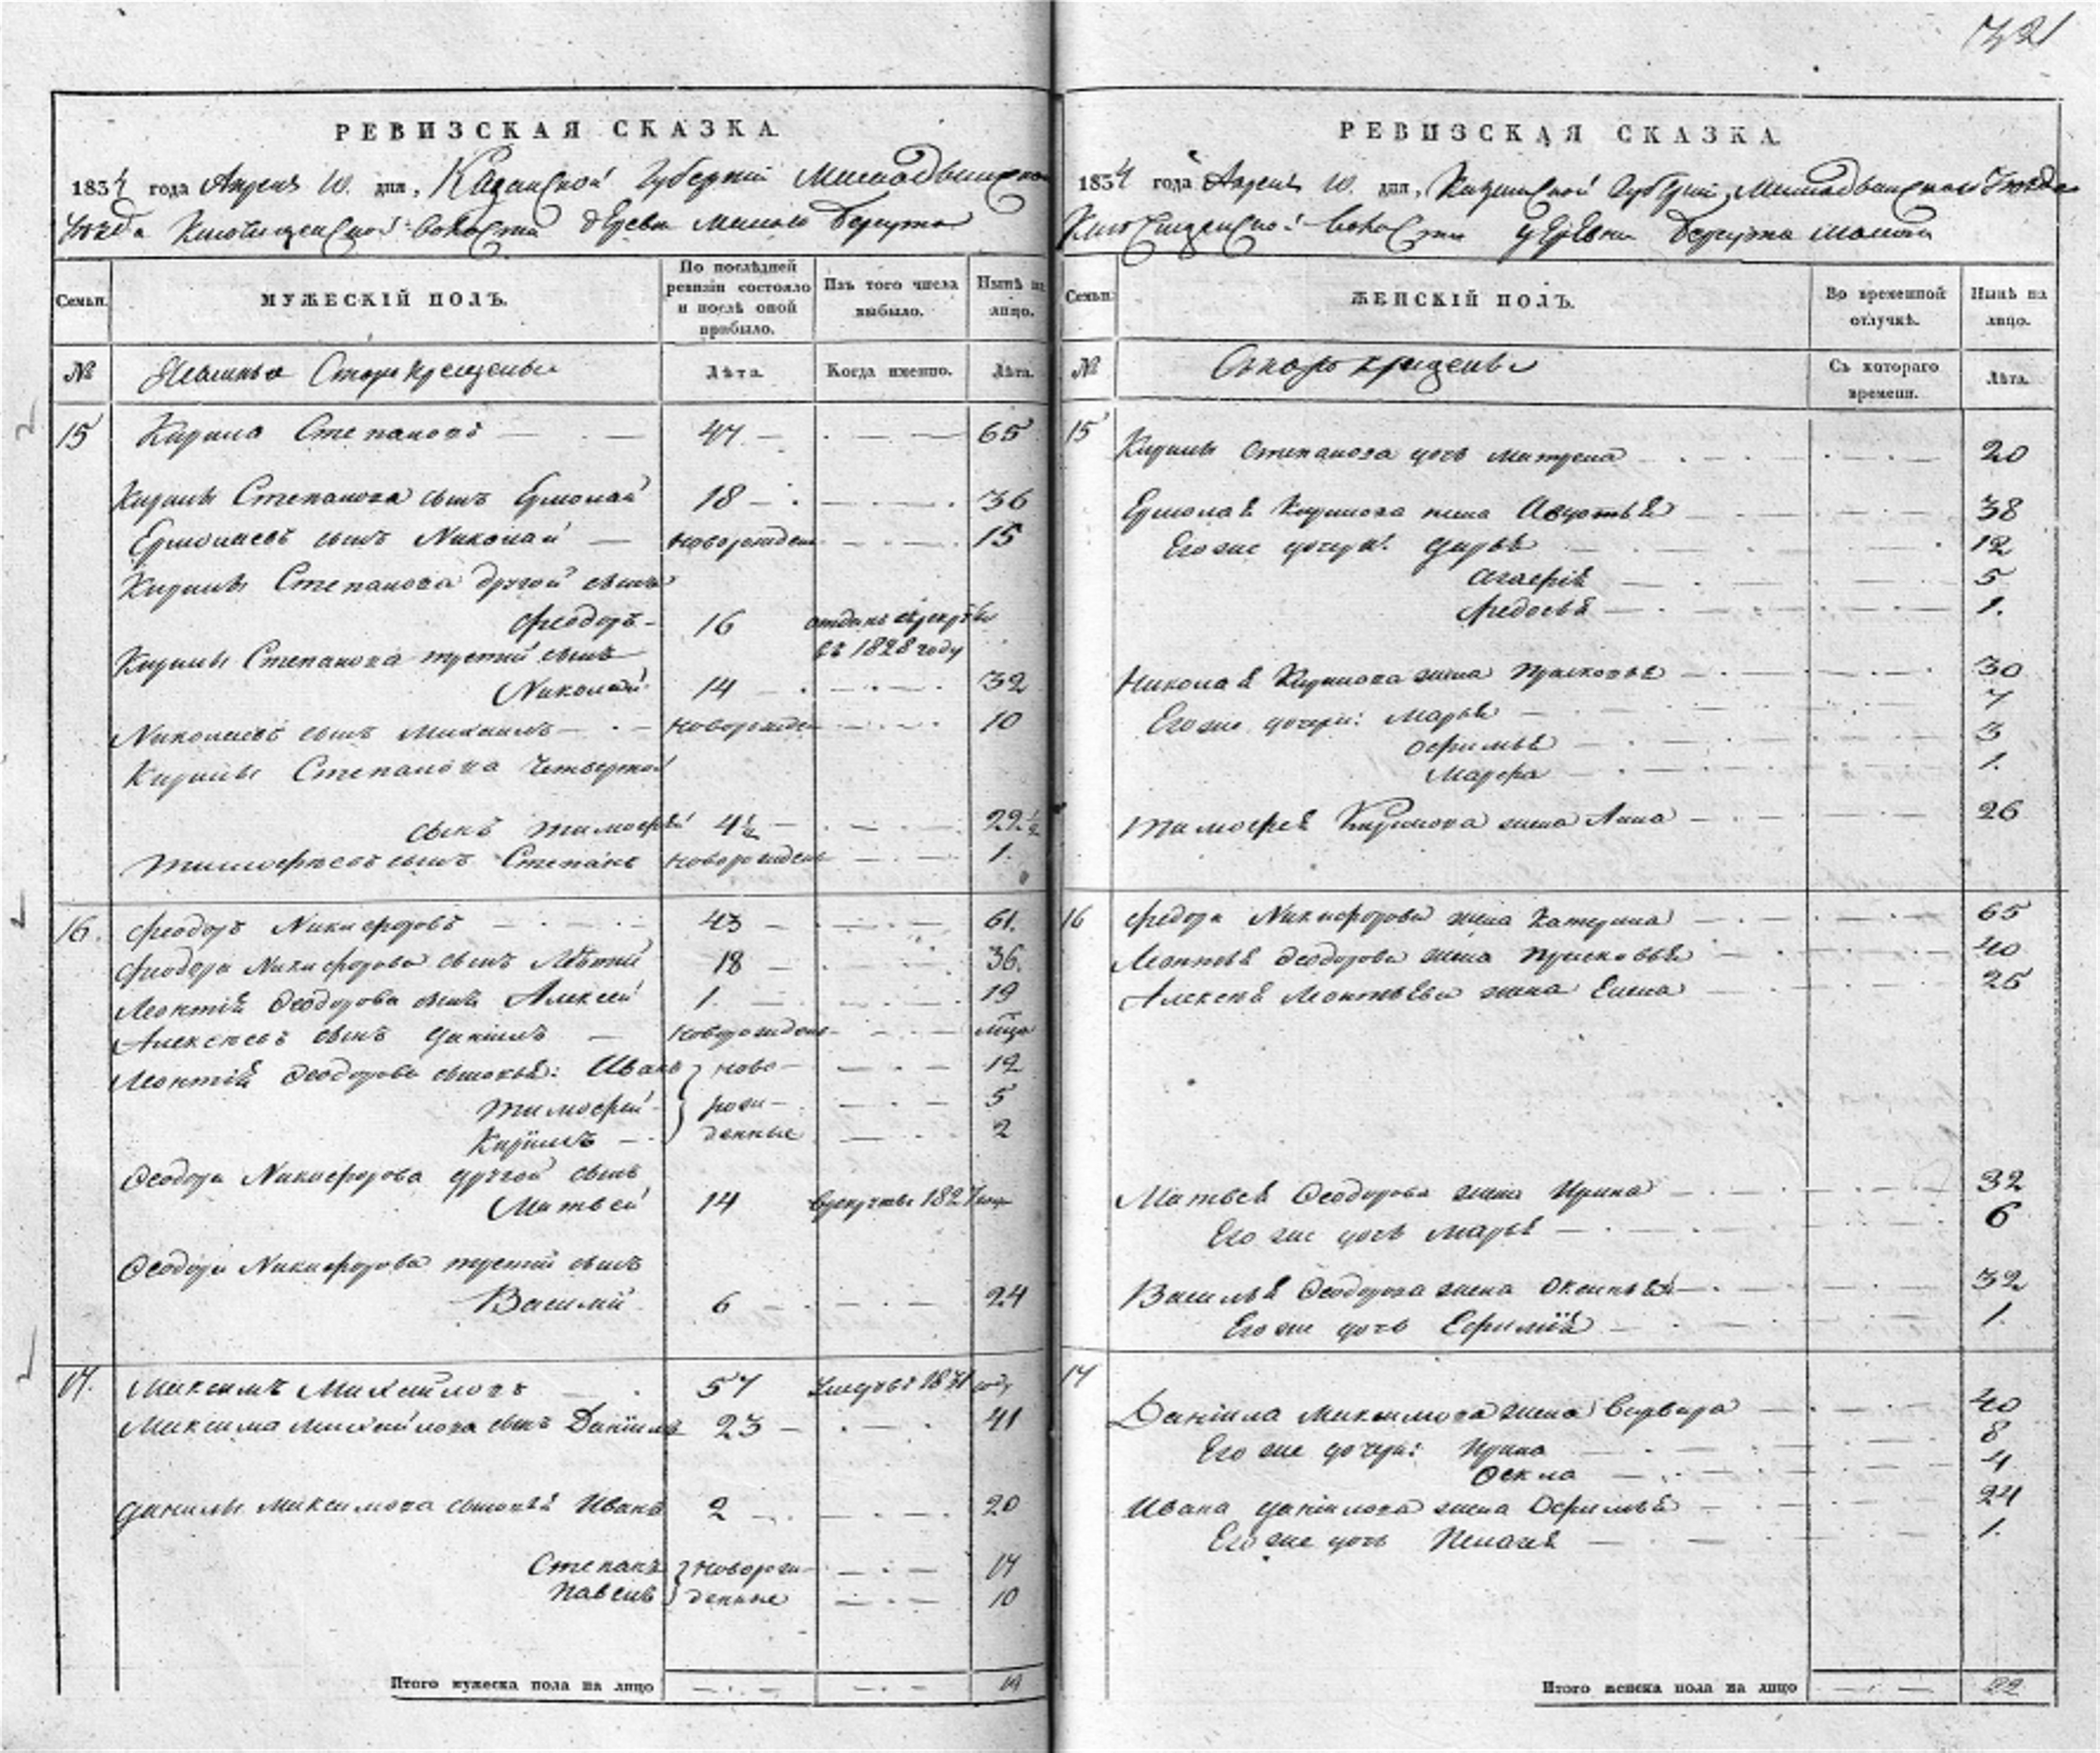 721
РЕВИЗСКАЯ СКАЗКА.
1834 года Апреля 10. дня, Казанской Губернии Мамадышскаго
Уезда волости деревни Малаго Берсута
Семьи.
МУЖЕСКІЙ ПОЛЪ.
По послѣдней ревизіи состояло и послѣ оной прибыло.
Изъ того числа выбыло.
Нынѣ на лицо.
№
Старокрещены
Лѣта.
Когда именно.
Лѣта.
15 Кирила Степановъ 47 65
Кирилы Степанова сынъ Ермолай 18 36
Ермолаевъ сынъ Николай новорожден 15
Кирилы Степанова другой сынъ
Феодоръ 16 отданъ врекруты
въ 1828 году
Кирилы Степанова третий сынъ
Николай 14 32
Николаевъ сынъ Михаилъ новорожден 10
Кирилы Степанова четвертой
сынъ Тимофей 4½ 22½
Тимофеевъ сынъ Степанъ новорожден 1.
16. Феодоръ Никифоровъ 43 61.
Феодора Никифорова сынъ 18 36.
Леонтія Феодорова сынъ Алексей 1. 19
Алексеевъ сынъ Данiилъ новорожден
Леонтія Феодорова сыновья: Иванъ ново 12
Тимофей рож 5
Кирилъ денные 2
Феодора Никифорова другой сынъ
Матвей 14 врекруты 1827
Феодора Никифорова третий сынъ
Василий 6 24
17. Максимъ Михайловъ 57 году
Максима Михайлова сынъ Данiилъ 23 41
Данилы Максимова сыновья Иванъ 2 20
Степанъ новорож 17
Павелъ денные 10
Итого мужеска пола на лицо 19
РЕВИЗСКАЯ СКАЗКА.
1834 года Апреля 10. дня, Казанской Губернии, Мамадышскаго Уезда
волости деревни Берсута Малаго
Семьи.
ЖЕНСКІЙ ПОЛЪ.
Во временной отлучкѣ.
Нынѣ на лицо.
№
Старокрещены
Съ котораго времени.
Лѣта.
15 Кирилы Степанова дочь Матрена 20
Ермолая Кирилова жена Авдотья 38
Его же дочери: Дарья 12
Агафія 5
Федосья 1.
Николая Кирилова жена Прасковья 30
Его же дочери: Марья 7
Офимья 3
Марфа 1.
Тимофея Кирилова жена Анна 26
16 Федора Никифорова жена Катерина 65
Леонтья Феодорова жена Прасковья 40
Алексея Леонтьева жена Елена 25
Матвея Феодорова жена Ирина 32
Его же дочь Марья 6
Василья Феодорова жена Оксинья 32
Его же дочь Ефимія 1.
17
Данiила Максимова жена Варвара 40
Его же дочери: Ирина 8
Фекла 4
Ивана Данiилова жена Офимья 24
Его же дочь Пелагея 1.
Итого женска пола на лицо 22